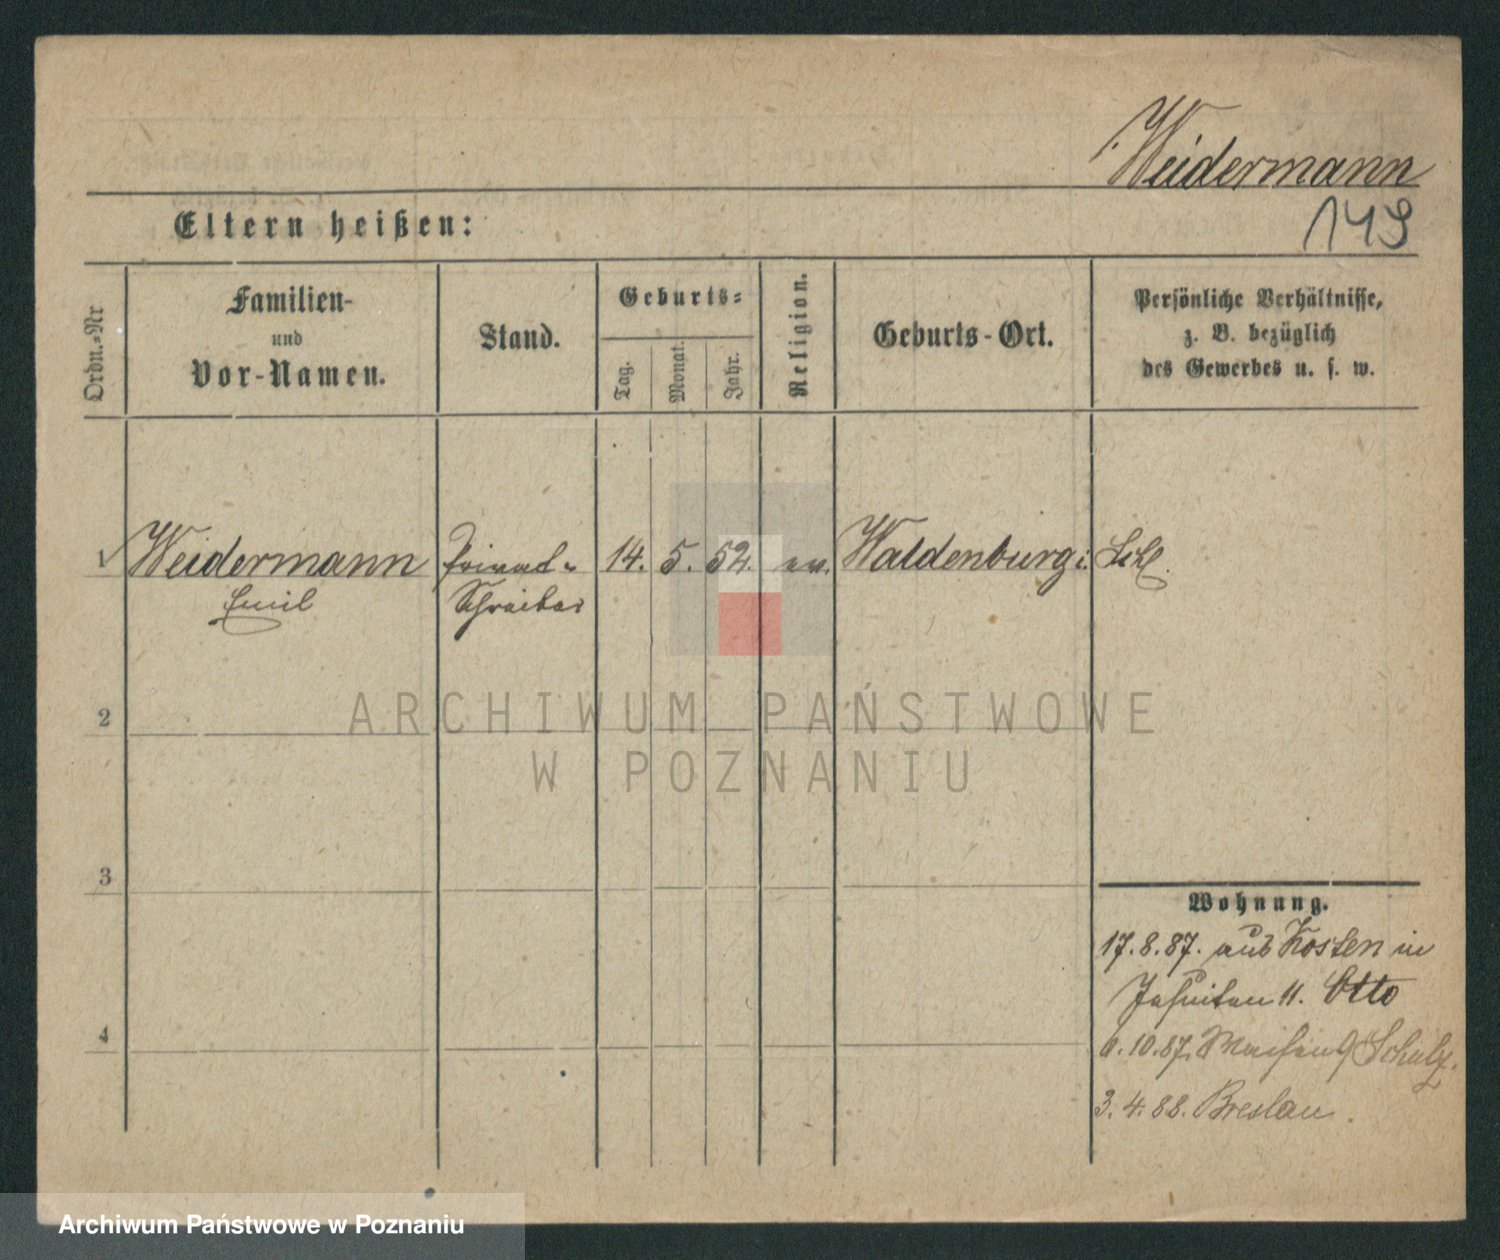 Weidermann
149
Eltern heißen:
Ordn.-Nr
Familien-
und
Vor-Namen.
Stand.
Geburts-
Tag.
Monat.
Jahr.
Religion.
Geburts-Ort.
Persönliche Verhältnisse,
z. B. bezüglich
des Gewerbes u. s. w.
1 Weidermann Privat- 14. 5. 52. ev. Waldenburg i. Schl.
Emil Schreiber
2
ARCHIWUM PAŃSTWOWE
W POZNANIU
3
Wohnung.
17.8.87. aus Kosten in
Jesuiten 11. Otto
4
6.10.87. 9 Schulz.
3.4.88. Breslau.
Archiwum Państwowe w Poznaniu